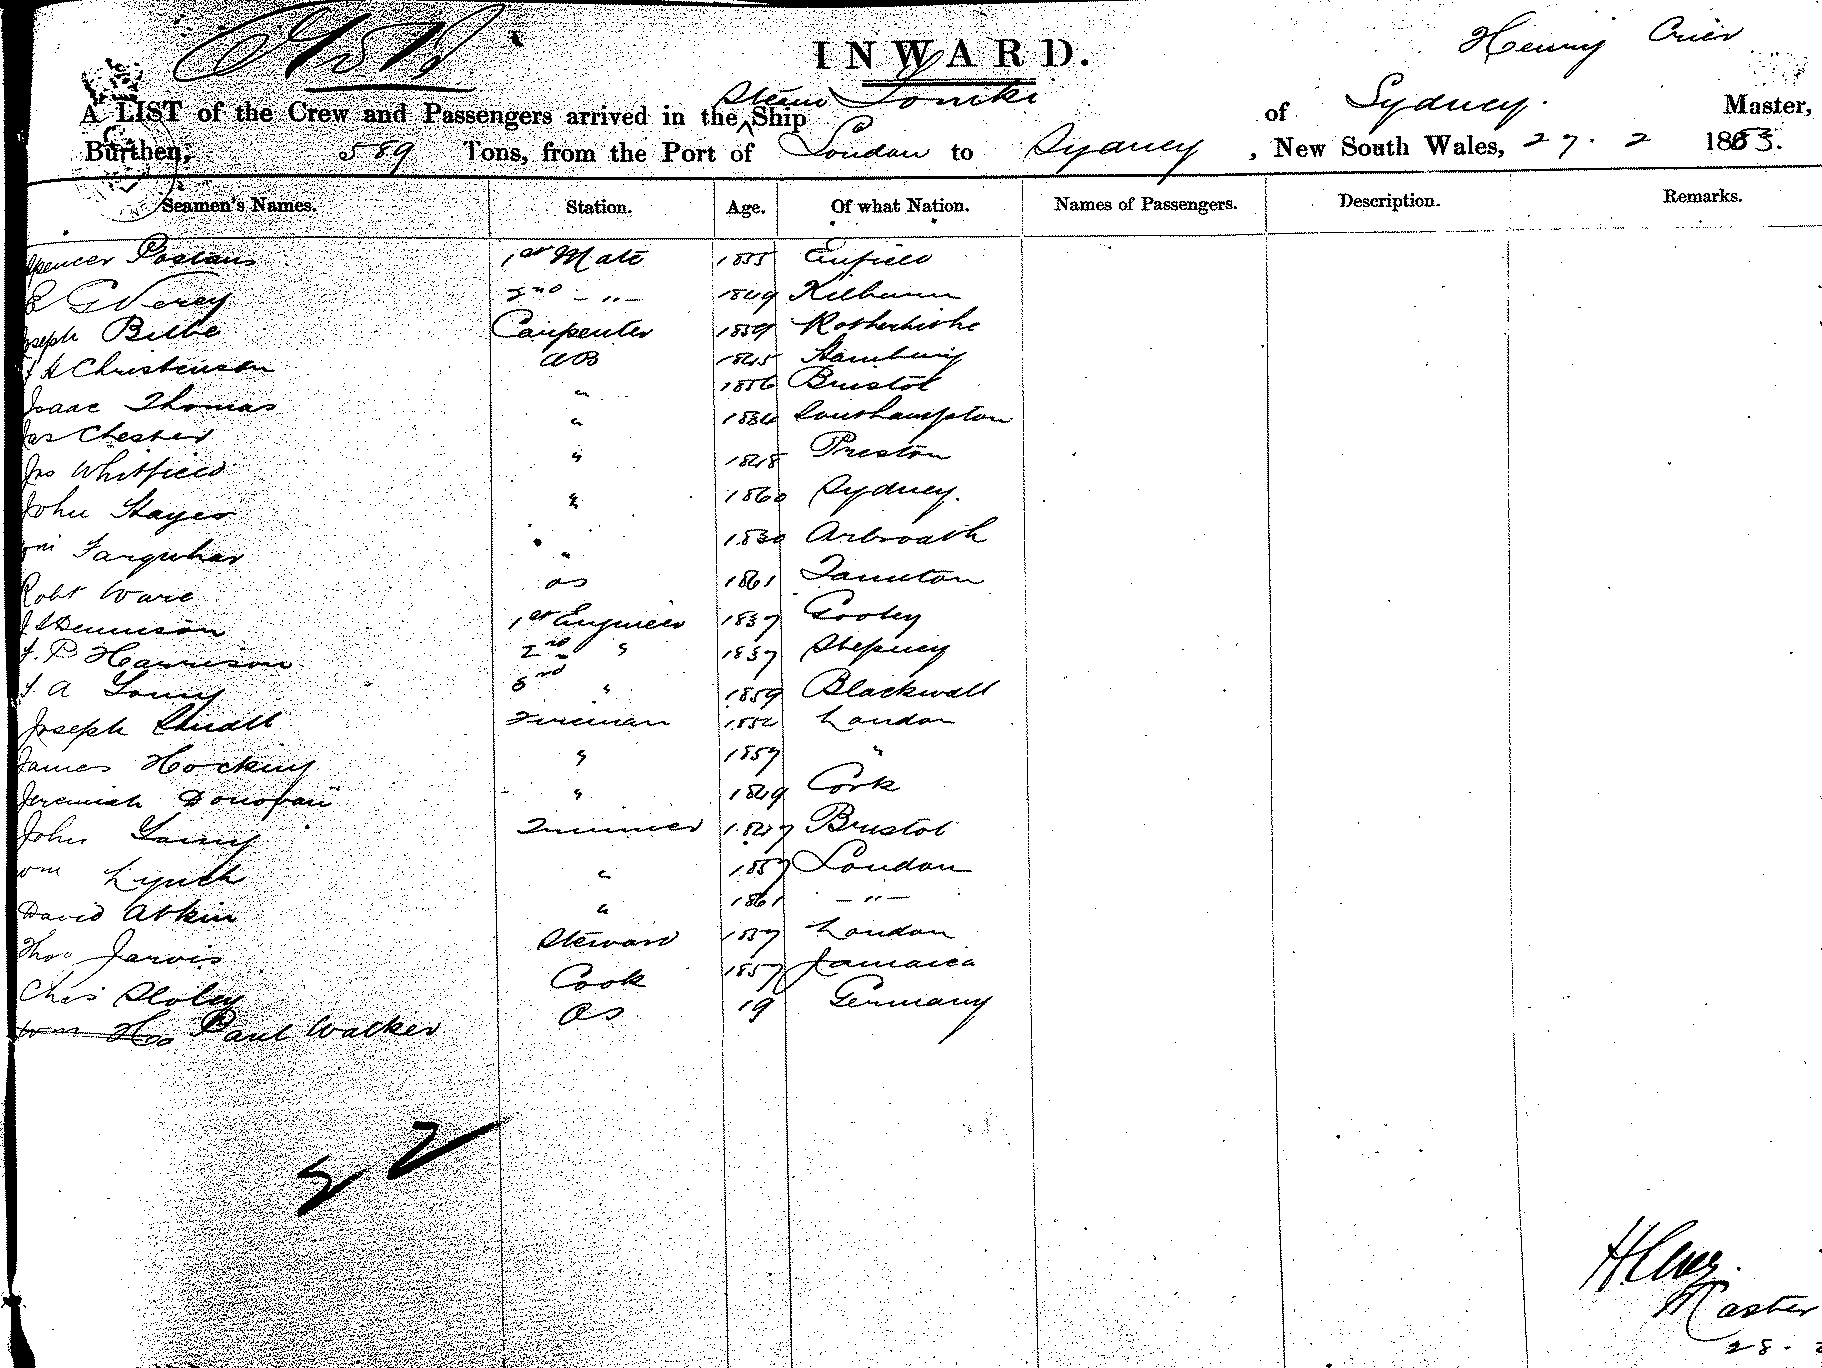 INWARD.
Henry
A LIST of the Crew and Passengers arrived in the Steam Ship of Sydney. Master,
Burthen, 589 Tons, from the Port of London to Sydney, New South Wales, 27. 2 1883.
Seamen's Names. Station. Age. Of what Nation. Names of Passengers. Description. Remarks.
Spencer 1st Mate 1855 Enfield
2nd -"- 1849 Kilburn
Joseph Bilbe Carpenter 1839 Rotherhithe
Christenson AB 1845 Hamburg
Isaac Thomas " 1856 Bristol
Jas Chester " Southampton
Jno Whitfield " 1848 Preston
John Hayes " 1860 Sydney.
Wm Farquhar " 1830 Arbroath
Robt Ware OS 1861 Taunton
Dennison 1st Engineer 1837
F. P Harrison 2nd " 1837 Stepney
F. A Young 3rd " 1859 Blackwall
Joseph Fireman London
James Hocking " 1857 "
Jeremiah Donovan " 1849 Cork
John Young Trimmer 1847 Bristol
Wm Lynch " 1857 London
David Atkin " 1861 -"-
Thos Jarvis Steward 1837 London
Chas Cook 1857 Jamaica
Paul Walker OS 19 Germany
22
Master
28.